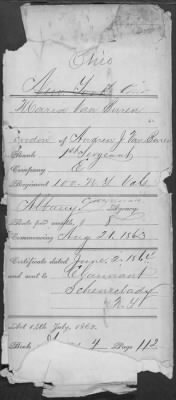 Ohio
Maria Van Buren
Widow of Andrew J. Van Buren
Rank 1st Sergeant
Company E
Regiment 100 N.Y. Vols
Albany Agency
Rate per month, 8
Commencing Aug 21. 1863
Certificate dated June 2. 1864
and sent to Claimant
Schenectady
N.Y.
Act 14th July, 1862.
Book 4 Page 112